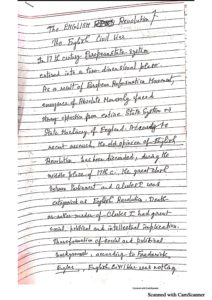 The ENGLISH Revolution /
The English Civil War
In 17th century European state system
entered into a two-dimensional phase
As a result of European Reformation Movement,
emergence of Absolute Monarchy faced
strong opposition from entire State System or
State Machinery of England. According to
recent research, the old opinion of English
Revolution has been discarded, during the
middle phase of 17th c. the great shock
between Parliament and Charles I was
categorised as English Revolution. Death
or rather murder of Charles I had great
social, political and intellectual implication.
Transformation of social and political
background, according to Frederick
Engles, English Civil War was nothing
Scanned with CamScanner
Scanned with CamScanner